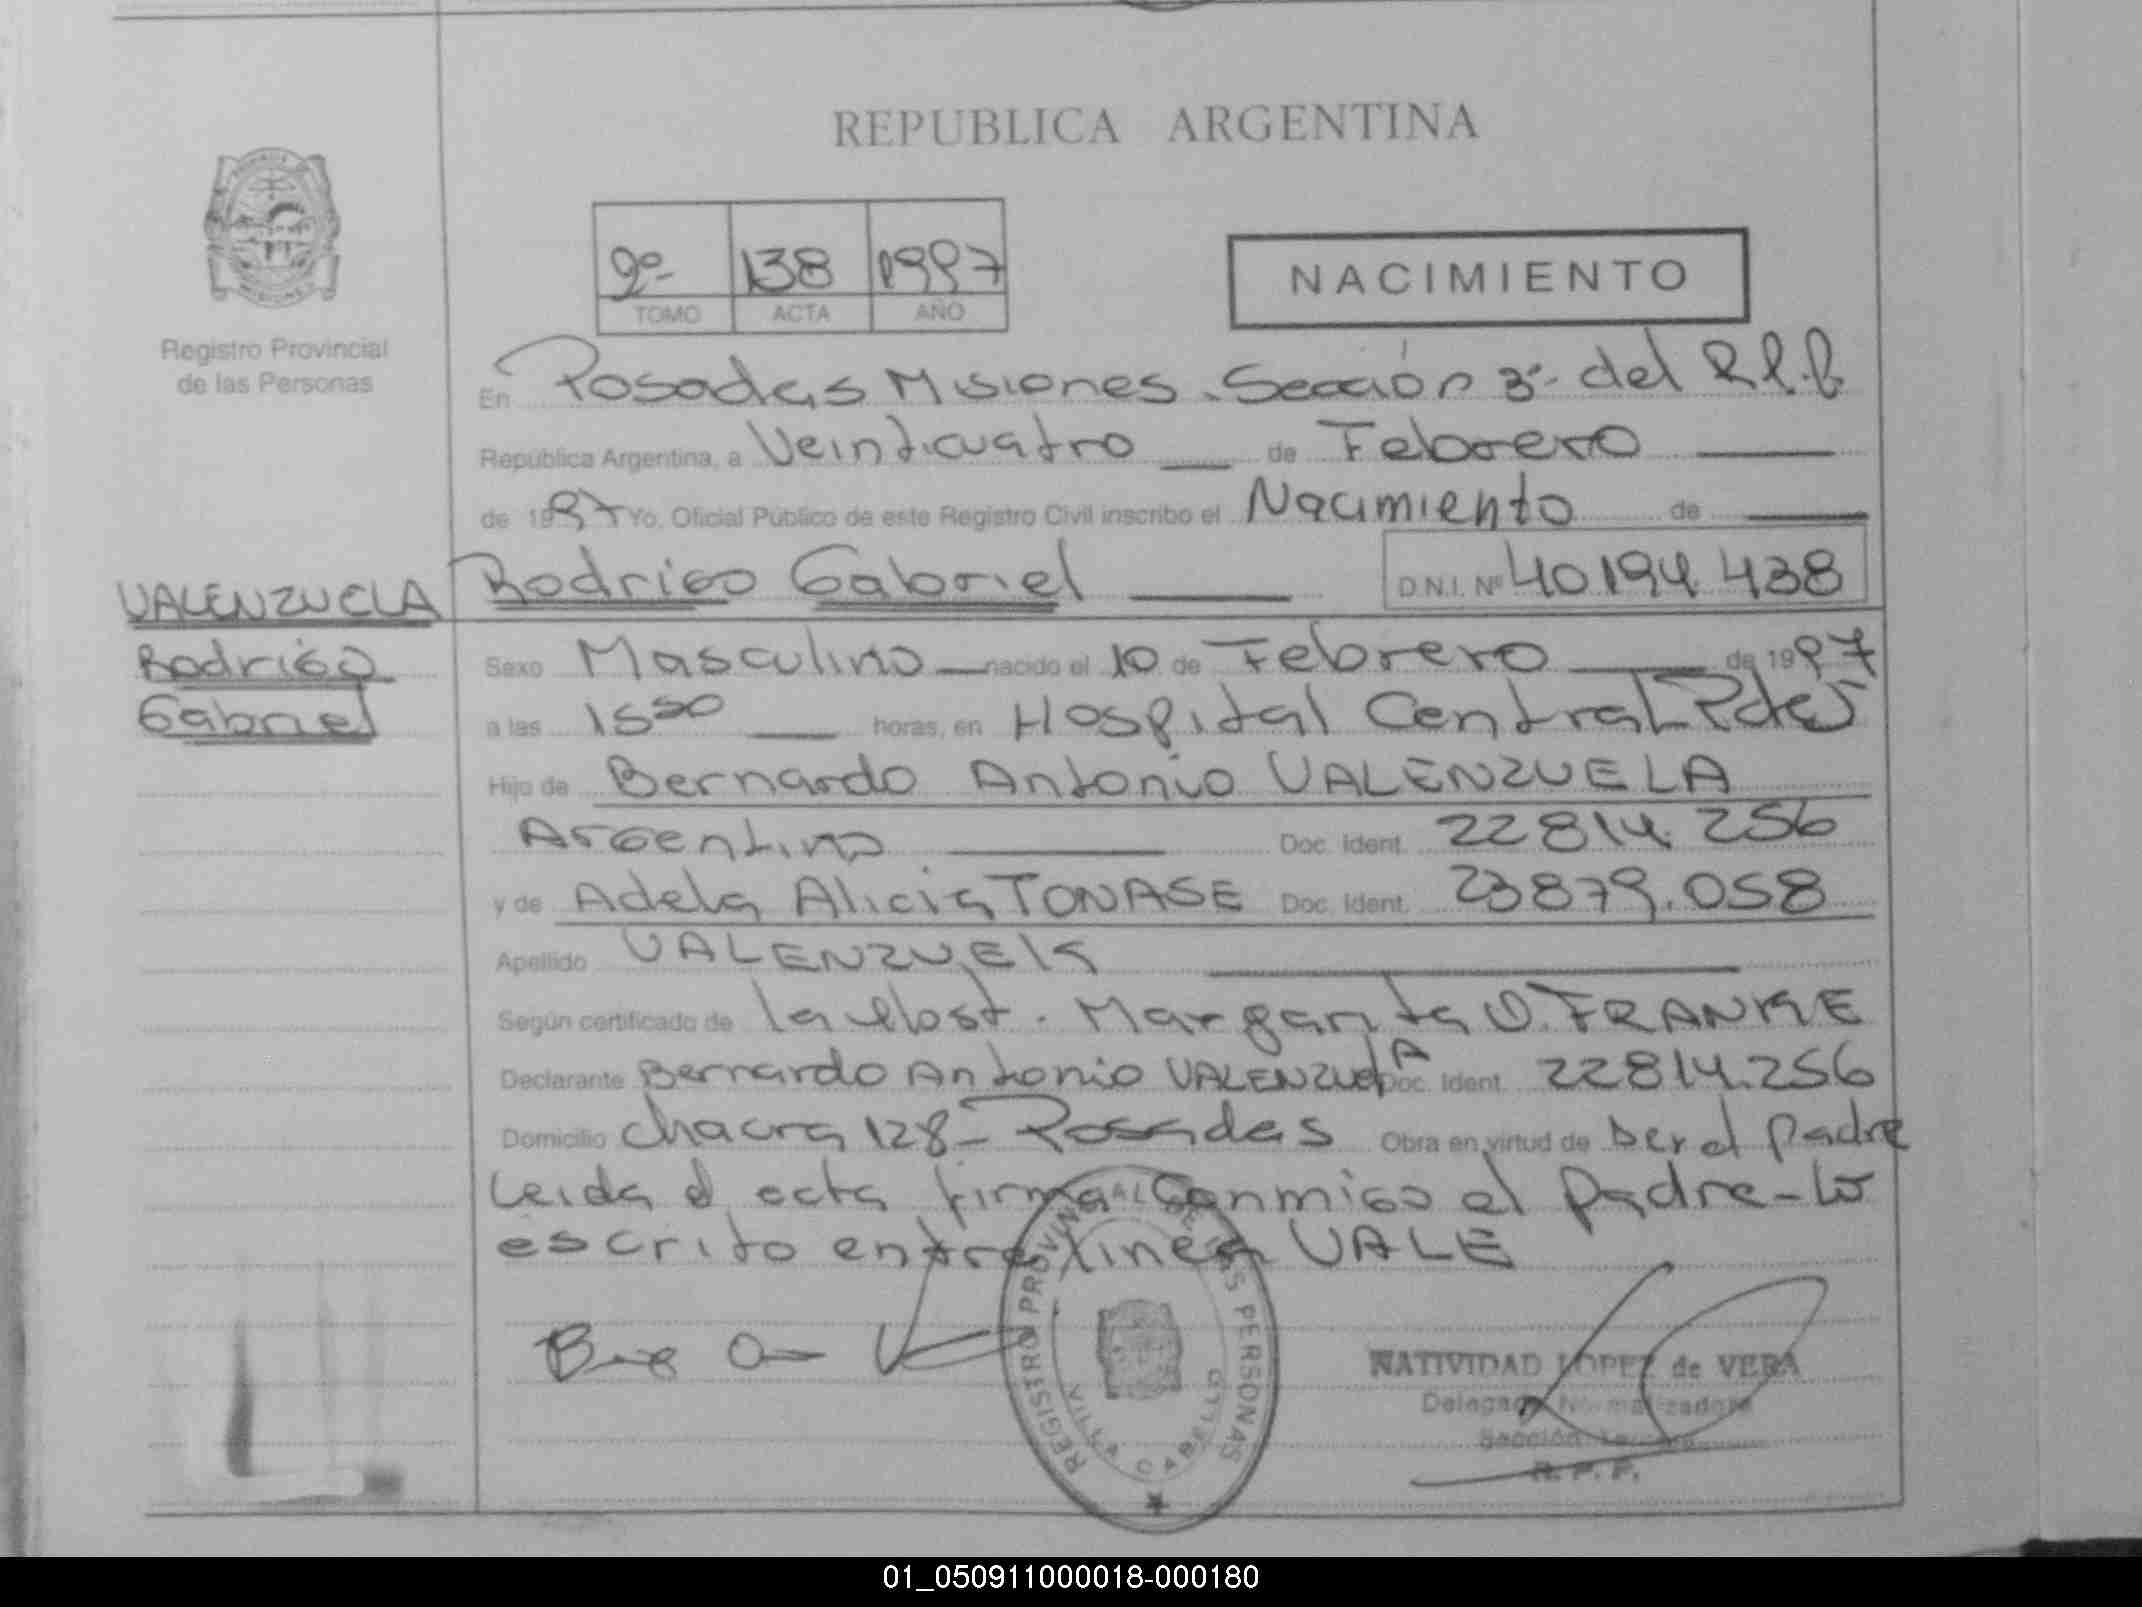 REPUBLICA ARGENTINA
2º- 138 1997
TOMO ACTA AÑO
NACIMIENTO
Registro Provincial
de las Personas
En Posadas Misiones. Sección 3ª- del R.P.P.
Republica Argentina, a Veinticuatro de Febrero
de 1997 Yo, Oficial Público de este Registro Civil inscribo el Nacimiento de
VALENZUELA Rodrigo Gabriel D.N.I. Nº 40.194.438
Rodrigo Sexo Masculino nacido el 10 de Febrero de 1997
Gabriel a las horas, en Hospital Central Pdas
Hijo de Bernardo Antonio VALENZUELA
Argentino Doc. Ident. 22814.256
y de Adela Alicia TONASE Doc. Ident. 23879.058
Apellido VALENZUELA
Según certificado de la Obst. Margarita FRANKE
Declarante Bernardo Antonio VALENZUELA Doc. Ident. 22814.256
Domicilio Chacra 128- Posadas Obra en virtud de ser el padre
Leida el acta firma conmigo el padre- Lo
escrito entre linea VALE
REGISTRO PROVINCIAL DE LAS PERSONAS
VILLA CABELLO
NATIVIDAD LOPEZ de VERA
Delegada Normalizadora
Sección
R. P. P.
01_050911000018-000180